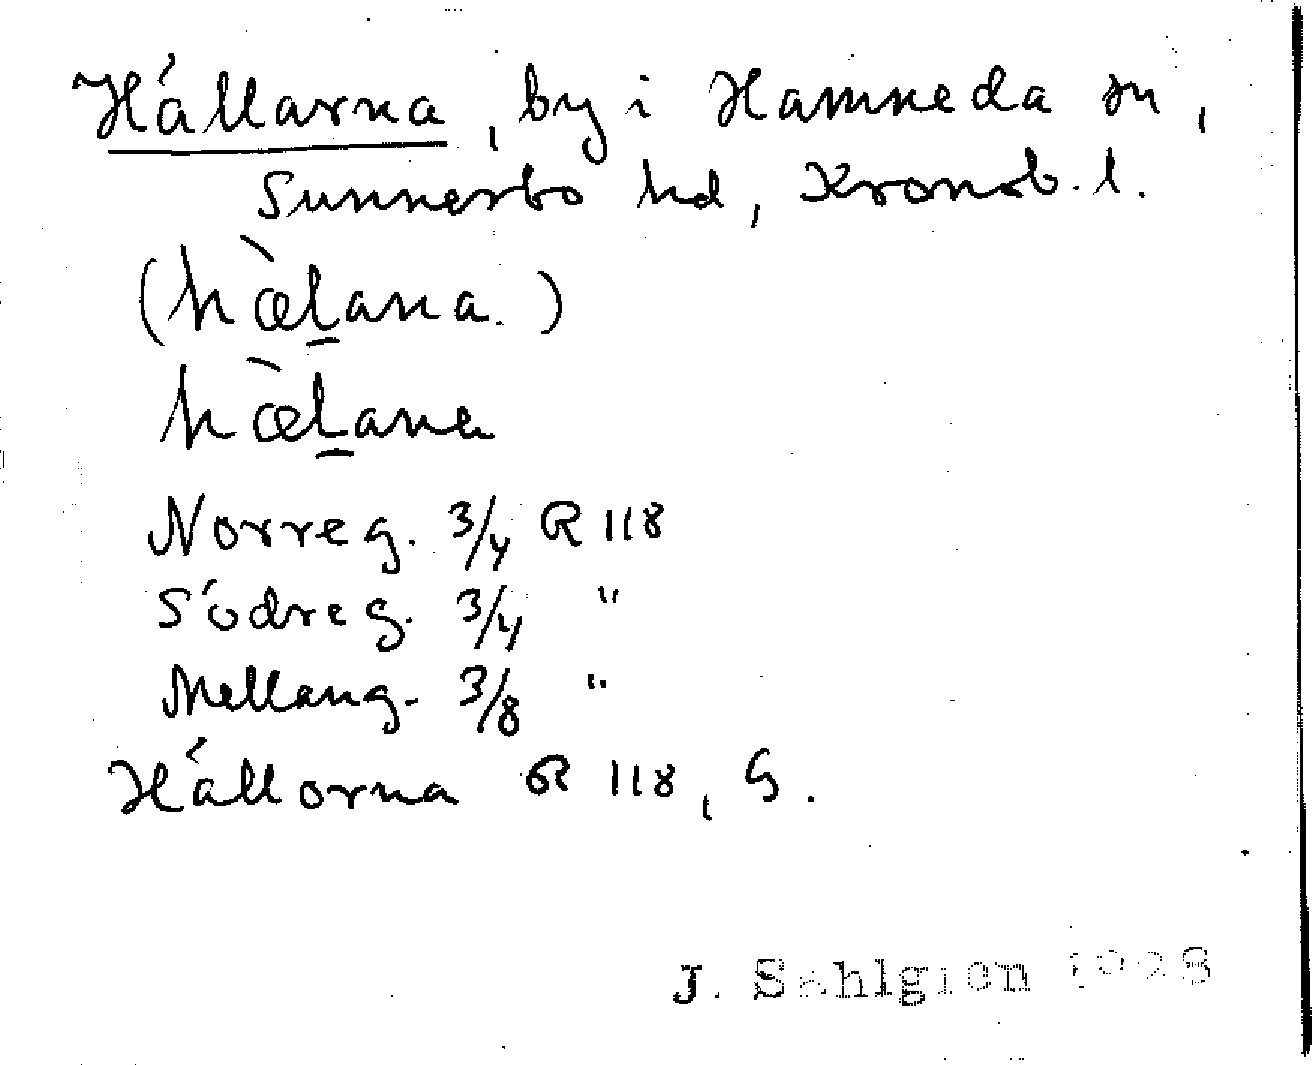 Hállarna, by i Hamneda sn,
Sunnerbo hd, Kronob. l.
(hæ̀l̠ana.)
hæ̀l̠ana
Norreg. 3/4 R 118
Södreg. 3/4 "
Mellang. 3/8 "
Hállorna R 118, G.
J. Sahlgren 1928